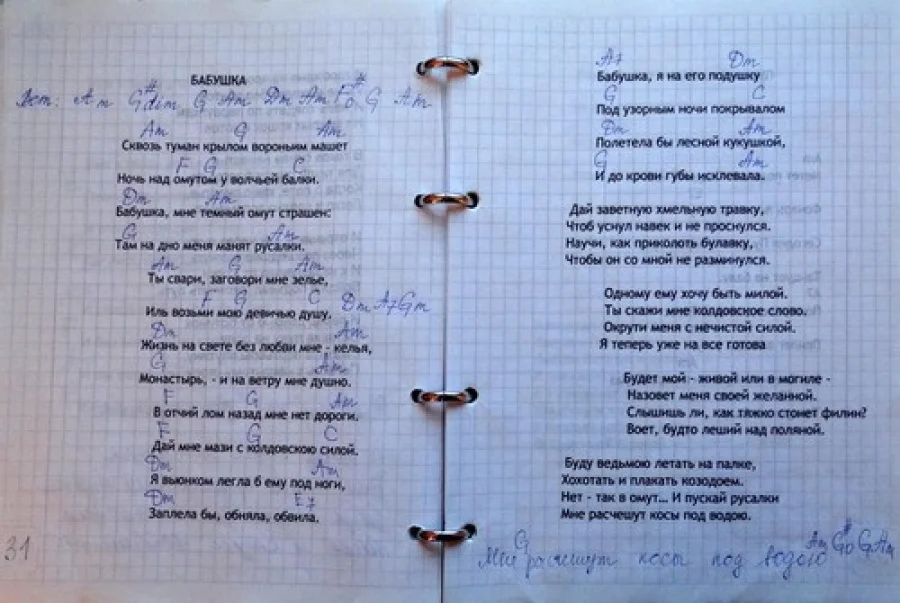 БАБУШКА
Вст: Am G#dim G Am Dm Am F#o G Am
Am G Am
Сквозь туман крылом вороньим машет
F G C
Ночь над омутом у волчьей балки.
Dm Am
Бабушка, мне темный омут страшен:
G Am
Там на дно меня манят русалки.
Am G Am
Ты свари, заговори мне зелье,
F G C Dm A7 Gm
Иль возьми мою девичью душу.
Dm Am
Жизнь на свете без любви мне - келья,
G Am
Монастырь, - и на ветру мне душно.
F G Am
В отчий лом назад мне нет дороги.
F G C
Дай мне мази с колдовскою силой.
Dm Am
Я вьюнком легла б ему под ноги,
Dm E7
Заплела бы, обняла, обвила.
31
A7 Dm
Бабушка, я на его подушку
G C
Под узорным ночи покрывалом
Dm Am
Полетела бы лесной кукушкой,
G Am
И до крови губы исклевала.
Дай заветную хмельную травку,
Чтоб уснул навек и не проснулся.
Научи, как приколоть булавку,
Чтобы он со мной не разминулся.
Одному ему хочу быть милой.
Ты скажи мне колдовское слово.
Окрути меня с нечистой силой.
Я теперь уже на все готова
Будет мой - живой или в могиле -
Назовет меня своей желанной.
Слышишь ли, как тяжко стонет филин?
Воет, будто леший над поляной.
Буду ведьмою летать на палке,
Хохотать и плакать козодоем.
Нет - так в омут... И пускай русалки
Мне расчешут косы под водою.
G Am G#o G Am
Мне расчешут косы под водою